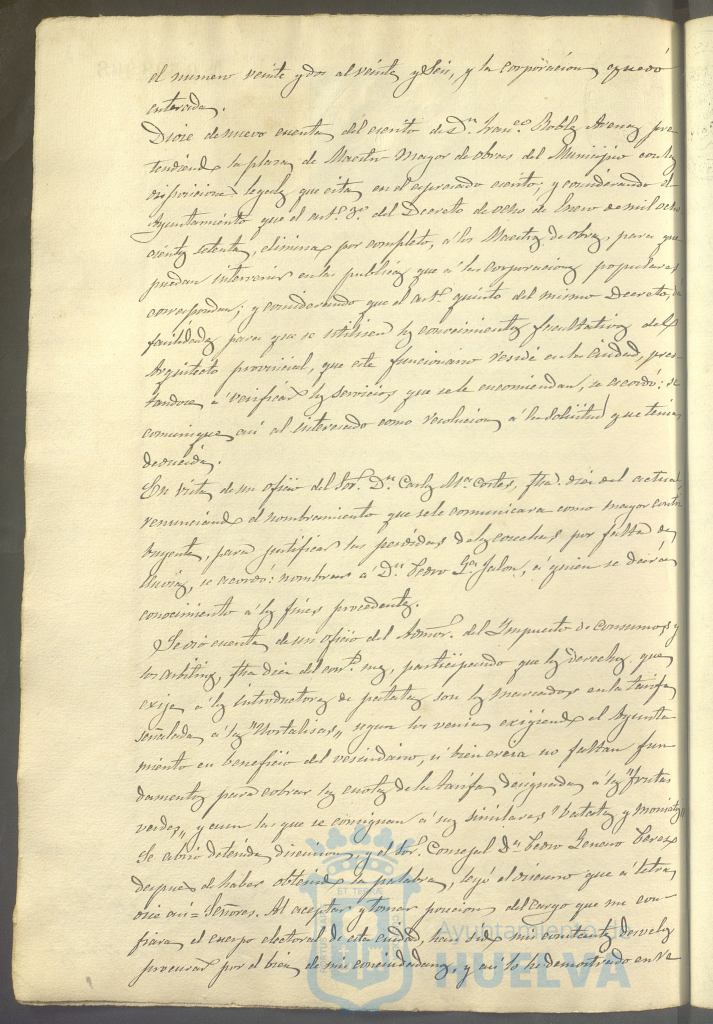 el numero veinte y dos al veinte y seis, y la corporacion quedó
enterada.
Diose de nuevo cuenta del escrito de Dn. Franco. Robles Arenas pre
tendiendo la plaza de Maestro mayor de obras del Municipio con las
disposiciones legales que cita en el espresado escrito; y considerando el
Ayuntamiento que el artº. 3º. del Decreto de ocho de Enero de mil ocho
cientos setenta, elimina por completo, á los Maestros de obras, para que
puedan intervenir en las publicas que á las corporaciones populares
correspondan; y considerando que el artº. quinto del mismo Decreto, dá
facilidades para que se utilicen los conocimientos facultativos del
Arquitecto provincial, que este funcionario reside en la ciudad, pres
tandose á verificar los servicios que se le encomiendan, se acordó: se
comunique asi al interesado como resolucion á la solicitud que tenia
deducida.
En vista de un oficio del Sor. Dn. Carlos Ma. Cortes, fha. diez del actual
renunciando el nombramiento que se le comunicara como mayor contri
buyente, para justificar las perdidas de las cosechas por falta de
lluvias, se acordó: nombrar á Dn. Pedro Ga. Jalon, á quien se dará
conocimiento á los fines procedentes.
Se dió cuenta de un oficio del Admor. del Impuesto de Consumos y
los arbitrios, fha. diez del corte. mes, participando que los derechos que
exije á los introductores de patatas son los marcados en la tarifa
señalada á las "Hortalisas" segun los venia exigiendo el Ayunta
miento en beneficio del vecindario, si bien creia no faltan fun
damentos para cobrar las cuotas de la tarifa designadas á las "frutas
verdes" y en las que se consignan á sus similares "batatas y moniatos"
Se abrió detenida discusion, y el Sor. Concejal Dn. Pedro Jenaro Perez
despues de haber obtenido la palabra, leyó el discurso que á letra
dice asi = Señores. Al aceptar y tomar posesion del cargo que me con
fiara el cuerpo electoral de esta ciudad, han sido mis constantes desvelos
procurar por el bien de mis conciudadanos, y asi lo he demostrado en va
Ayuntamiento de
HUELVA